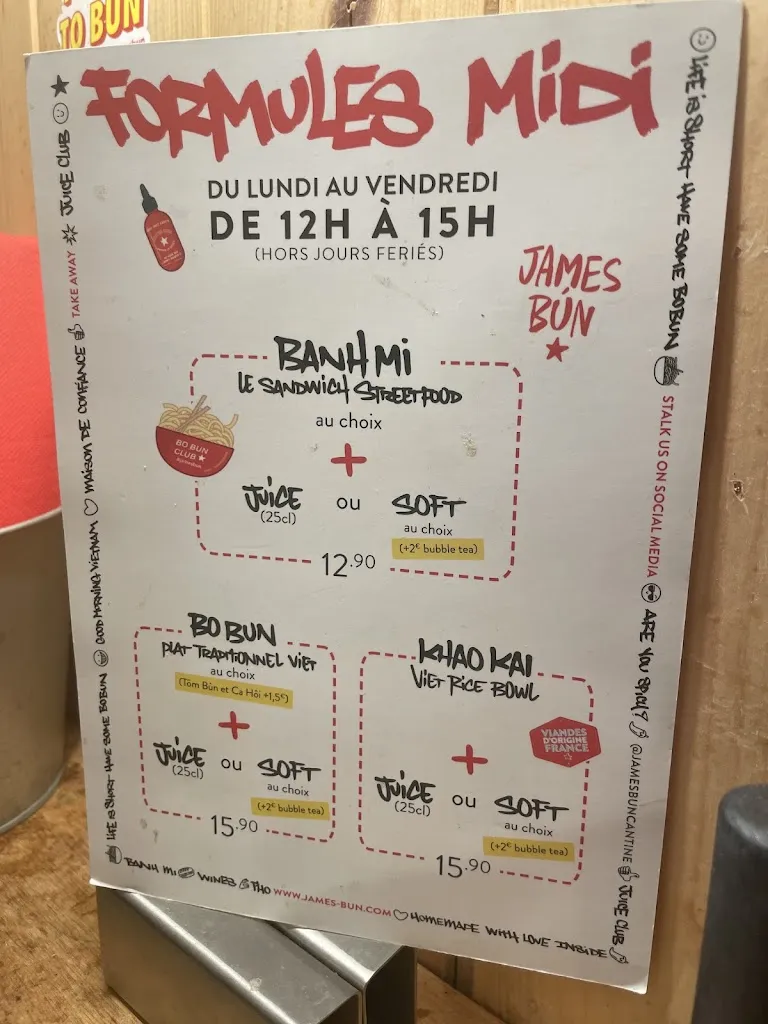 TO BUN
FORMULES MIDI
DU LUNDI AU VENDREDI
DE 12H À 15H
(HORS JOURS FERIÉS)
JAMES
BÚN
BANH MI
LE SANDWICH STREETFOOD
au choix
+
JUICE
(25cl)
ou
SOFT
au choix
(+2€ bubble tea)
12.90
BO BUN
CLUB
BO BUN
PLAT TRADITIONNEL VIET
au choix
(Tôm Bún et Ca Hôi +1,5€)
+
JUICE
(25cl)
ou
SOFT
au choix
(+2€ bubble tea)
15.90
KHAO KAI
VIET RICE BOWL
VIANDES
D'ORIGINE
FRANCE
+
JUICE
(25cl)
ou
SOFT
au choix
(+2€ bubble tea)
15.90
LIFE IS SHORT HAVE SOME BOBUN GOOD MORNING VIETNAM MAISON DE CONFIANCE TAKE AWAY JUICE CLUB
LIFE IS SHORT HAVE SOME BOBUN STALK US ON SOCIAL MEDIA ARE YOU SPICY? @JAMESBUNCANTINE JUICE CLUB
BANH MI WINES & PHO WWW.JAMES-BUN.COM HOMEMADE WITH LOVE INSIDE